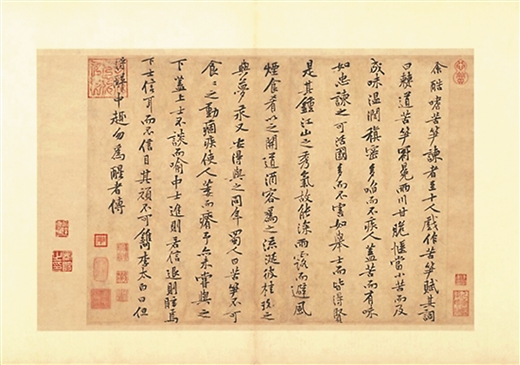 余酷嗜苦笋諫者至十人戲作苦笋賦其詞
曰僰道苦笋冠冕兩川甘脆愜當小苦而反
成味溫潤縝密多啗而不疾人蓋苦而有味
如忠諫之可活國多而不害如舉士而皆得賢
是其鍾江山之秀氣故能深雨露而避風
煙食肴以之開道酒客為之流涎彼桂玫之
與夢永又安得與之同年蜀人曰苦笋不可
食〻之動痼疾使人萎而瘠予亦未嘗與之
下蓋上士不談而喻中士進則若信退則眩焉
下士信耳而不信目其頑不可鐫李太白曰但
得醉中趣勿為醒者傳